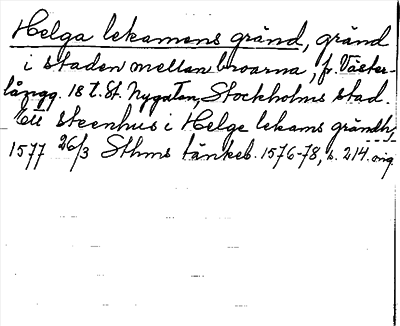 Helga lekamens gränd, gränd
i staden mellan broarna, fr. Väster-
långg. 18 t. St. Nygatan, Stockholms stad.
Ett steenhus i Helge lekams grändh,
1577 26/3 Sthms tänkeb. 1576-78, s. 214. orig.